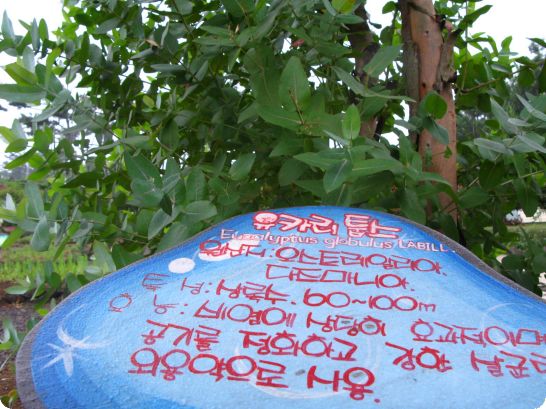 유카리 툽스
Eucalyptus globulus LABILL.
원산지:오스트레일리아.
태즈매니아.
특성:상록수. 60~100m
효능:해열에 상당히 효과적이며
공기를 정화하고 강한 살균
외용약으로 사용.